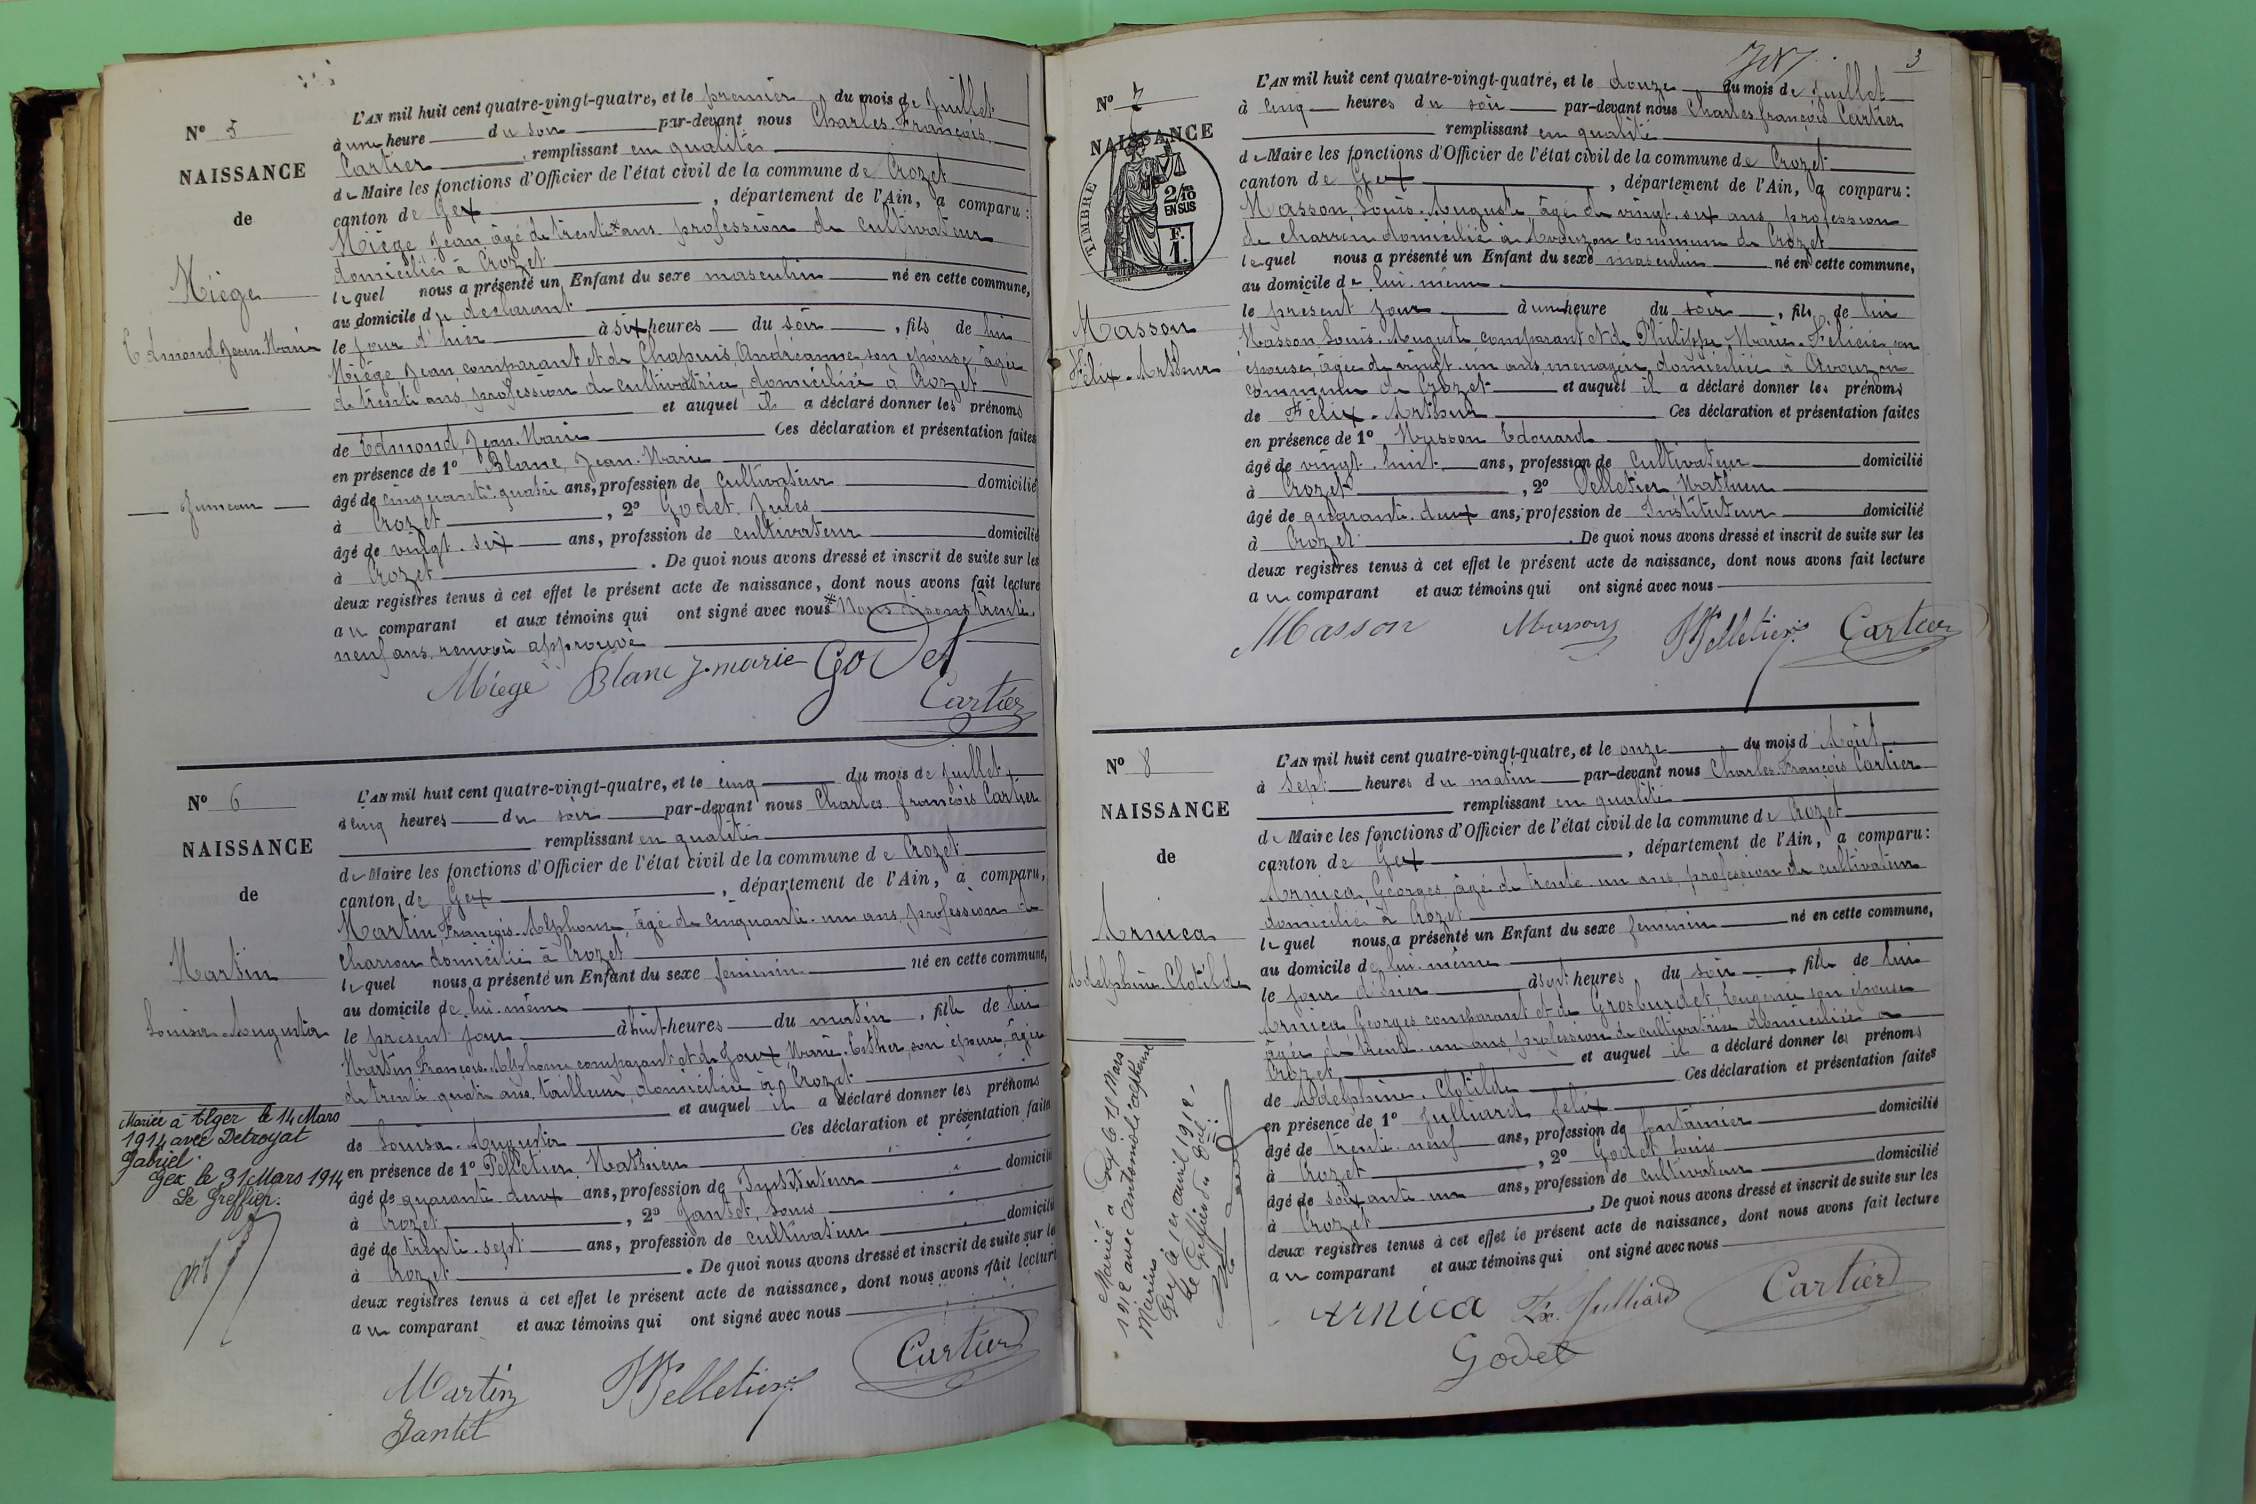 N° 5
NAISSANCE
de
Miège
Edmond, Jean-Marie
Jumeau
L'AN mil huit cent quatre-vingt-quatre, et le premier du mois de Juillet
à une heure du soir par-devant nous Charles-François
Cartier, remplissant en qualité
de Maire les fonctions d'Officier de l'état civil de la commune de Crozet
canton de Gex, département de l'Ain, a comparu :
Miège Jean, âgé de trente* ans profession de cultivateur
domicilié à Crozet
lequel nous a présenté un Enfant du sexe masculin né en cette commune,
au domicile du déclarant
le jour d'hier à six heures du soir, fils de lui
Miège Jean, comparant et de Chapuis, Andréanne, son épouse âgée
de trente ans, profession de cultivatrice, domiciliée à Crozet
et auquel il a déclaré donner les prénoms
de Edmond, Jean-Marie Ces déclaration et présentation faites
en présence de 1° Blanc, Jean-Marie
âgé de cinquante-quatre ans, profession de cultivateur domicilié
à Crozet, 2° Godet, Jules
âgé de vingt-six ans, profession de cultivateur domicilié
à Crozet. De quoi nous avons dressé et inscrit de suite sur les
deux registres tenus à cet effet le présent acte de naissance, dont nous avons fait lecture
au comparant et aux témoins qui ont signé avec nous *Nous disons trente
neuf ans, renvoi approuvé
Miège Blanc J-marie Godet
Cartier
N° 6
NAISSANCE
de
Martin
Louisa-Augusta
Mariée à Alger le 14 Mars
1914 avec Detroyat
Gabriel.
Gex le 31 Mars 1914
Le Greffier.
L'AN mil huit cent quatre-vingt-quatre, et le cinq du mois de Juillet
à cinq heures du soir par-devant nous Charles-François Cartier
remplissant en qualité
de Maire les fonctions d'Officier de l'état civil de la commune de Crozet
canton de Gex, département de l'Ain, a comparu,
Martin, François-Alphonse, âgé de cinquante-un ans, profession de
charron domicilié à Crozet
lequel nous a présenté un Enfant du sexe feminin né en cette commune,
au domicile de lui-même
le présent jour à huit heures du matin, fille de lui
Martin François-Alphonse comparant et de Joux Marie-Esther, son épouse, âgée
de trente quatre ans, tailleuse, domiciliée à Crozet
et auquel il a déclaré donner les prénoms
de Louisa-Augusta Ces déclaration et présentation faites
en présence de 1° Pelletier Mathieu
âgé de quarante deux ans, profession de Instituteur domicilié
à Crozet, 2° Jantet, Louis
âgé de trente-sept ans, profession de cultivateur domicilié
à Crozet. De quoi nous avons dressé et inscrit de suite sur les
deux registres tenus à cet effet le présent acte de naissance, dont nous avons fait lecture
au comparant et aux témoins qui ont signé avec nous
Martin Pelletier Cartier
Jantet
3
N° 7
NAISSANCE
de
TIMBRE
2/10
EN SUS
F.
1.
Masson
Félix-Arthur
L'AN mil huit cent quatre-vingt-quatre, et le douze du mois de Juillet
à cinq heures du soir par-devant nous Charles François Cartier
remplissant en qualité
de Maire les fonctions d'Officier de l'état civil de la commune de Crozet
canton de Gex, département de l'Ain, a comparu :
Masson, Louis-Auguste, âgé de vingt-six ans, profession
de charron domicilié à Avouzon commune de Crozet
lequel nous a présenté un Enfant du sexe masculin né en cette commune,
au domicile de lui-même
le présent jour à une heure du soir, fils de lui
Masson, Louis-Auguste comparant et de Philippe Marie-Félicie, son
épouse, âgée de vingt-un ans, ménagère, domiciliée à Avouzon
commune de Crozet et auquel il a déclaré donner les prénoms
de Félix-Arthur Ces déclaration et présentation faites
en présence de 1° Masson Edouard
âgé de vingt-huit ans, profession de cultivateur domicilié
à Crozet, 2° Pelletier, Mathieu
âgé de quarante-deux ans, profession de Instituteur domicilié
à Crozet. De quoi nous avons dressé et inscrit de suite sur les
deux registres tenus à cet effet le présent acte de naissance, dont nous avons fait lecture
au comparant et aux témoins qui ont signé avec nous
Masson Masson Pelletier Cartier
N° 8
NAISSANCE
de
Arnica
Adelphine-Clotilde
Mariée à Gex le 18 Mars
1912 avec
Marius
Gex le 1er avril 1912.
Le Greffier du
L'AN mil huit cent quatre-vingt-quatre, et le onze du mois d'Août
à sept heures du matin par-devant nous Charles-François Cartier
remplissant en qualité
de Maire les fonctions d'Officier de l'état civil de la commune de Crozet
canton de Gex, département de l'Ain, a comparu :
Arnica, Georges, âgé de trente-un ans, profession de cultivateur
domicilié à Crozet
lequel nous a présenté un Enfant du sexe feminin né en cette commune,
au domicile de lui-même
le jour d'hier à sept heures du soir, fille de lui
Arnica, Georges comparant et de Grosburdet, Eugénie son épouse
âgée de trente-un ans, profession de cultivatrice domiciliée à
Crozet et auquel il a déclaré donner les prénoms
de Adelphine-Clotilde Ces déclaration et présentation faites
en présence de 1° Julliard Félix
âgé de trente-neuf ans, profession de fontainier domicilié
à Crozet, 2° Godet Louis
âgé de soixante un ans, profession de cultivateur domicilié
à Crozet. De quoi nous avons dressé et inscrit de suite sur les
deux registres tenus à cet effet le présent acte de naissance, dont nous avons fait lecture
au comparant et aux témoins qui ont signé avec nous
Arnica Fx. Julliard Cartier
Godet